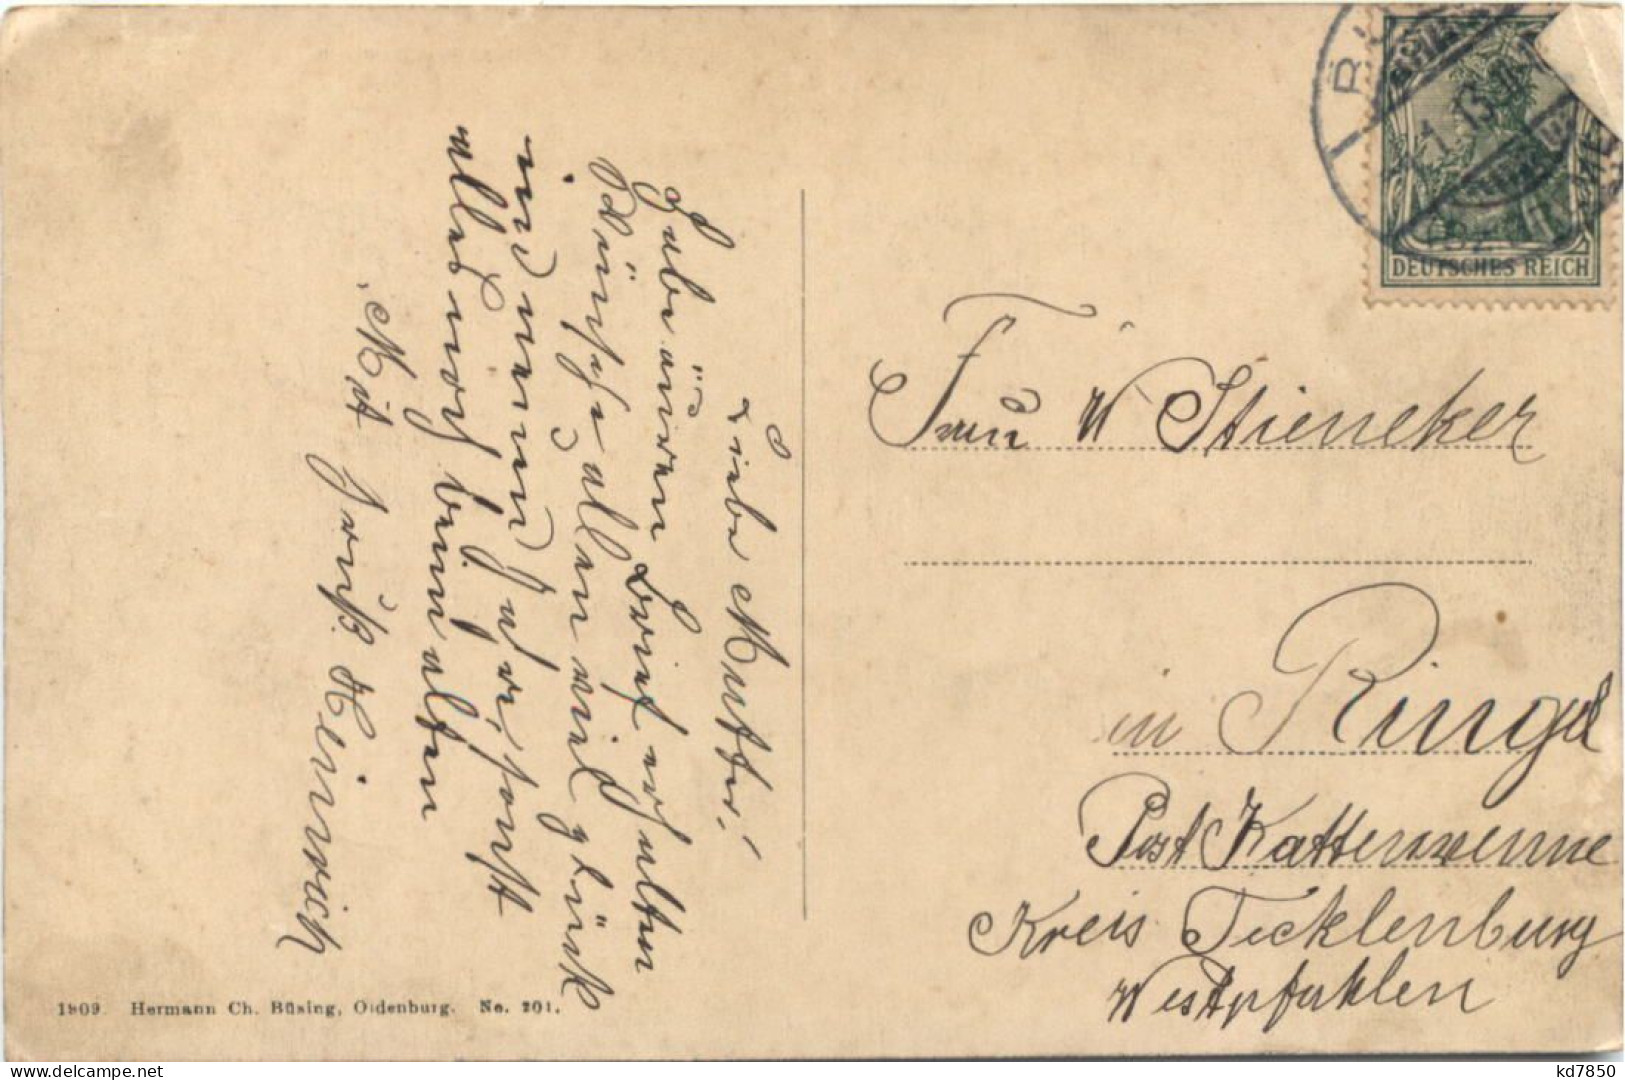 Liebe Mutter!
Habe euren Brief erhalten
Wünsche allen viel glück
im neuen Jahr, sonst
alles noch beim alten
Mit Gruß Heinrich
1909. Hermann Ch. Büsing, Oldenburg. No. 201.
DEUTSCHES REICH
Frau W Stieneker
in Ringel
Post Kattenvenne
Kreis Tecklenburg
Westpfahlen
kd7850